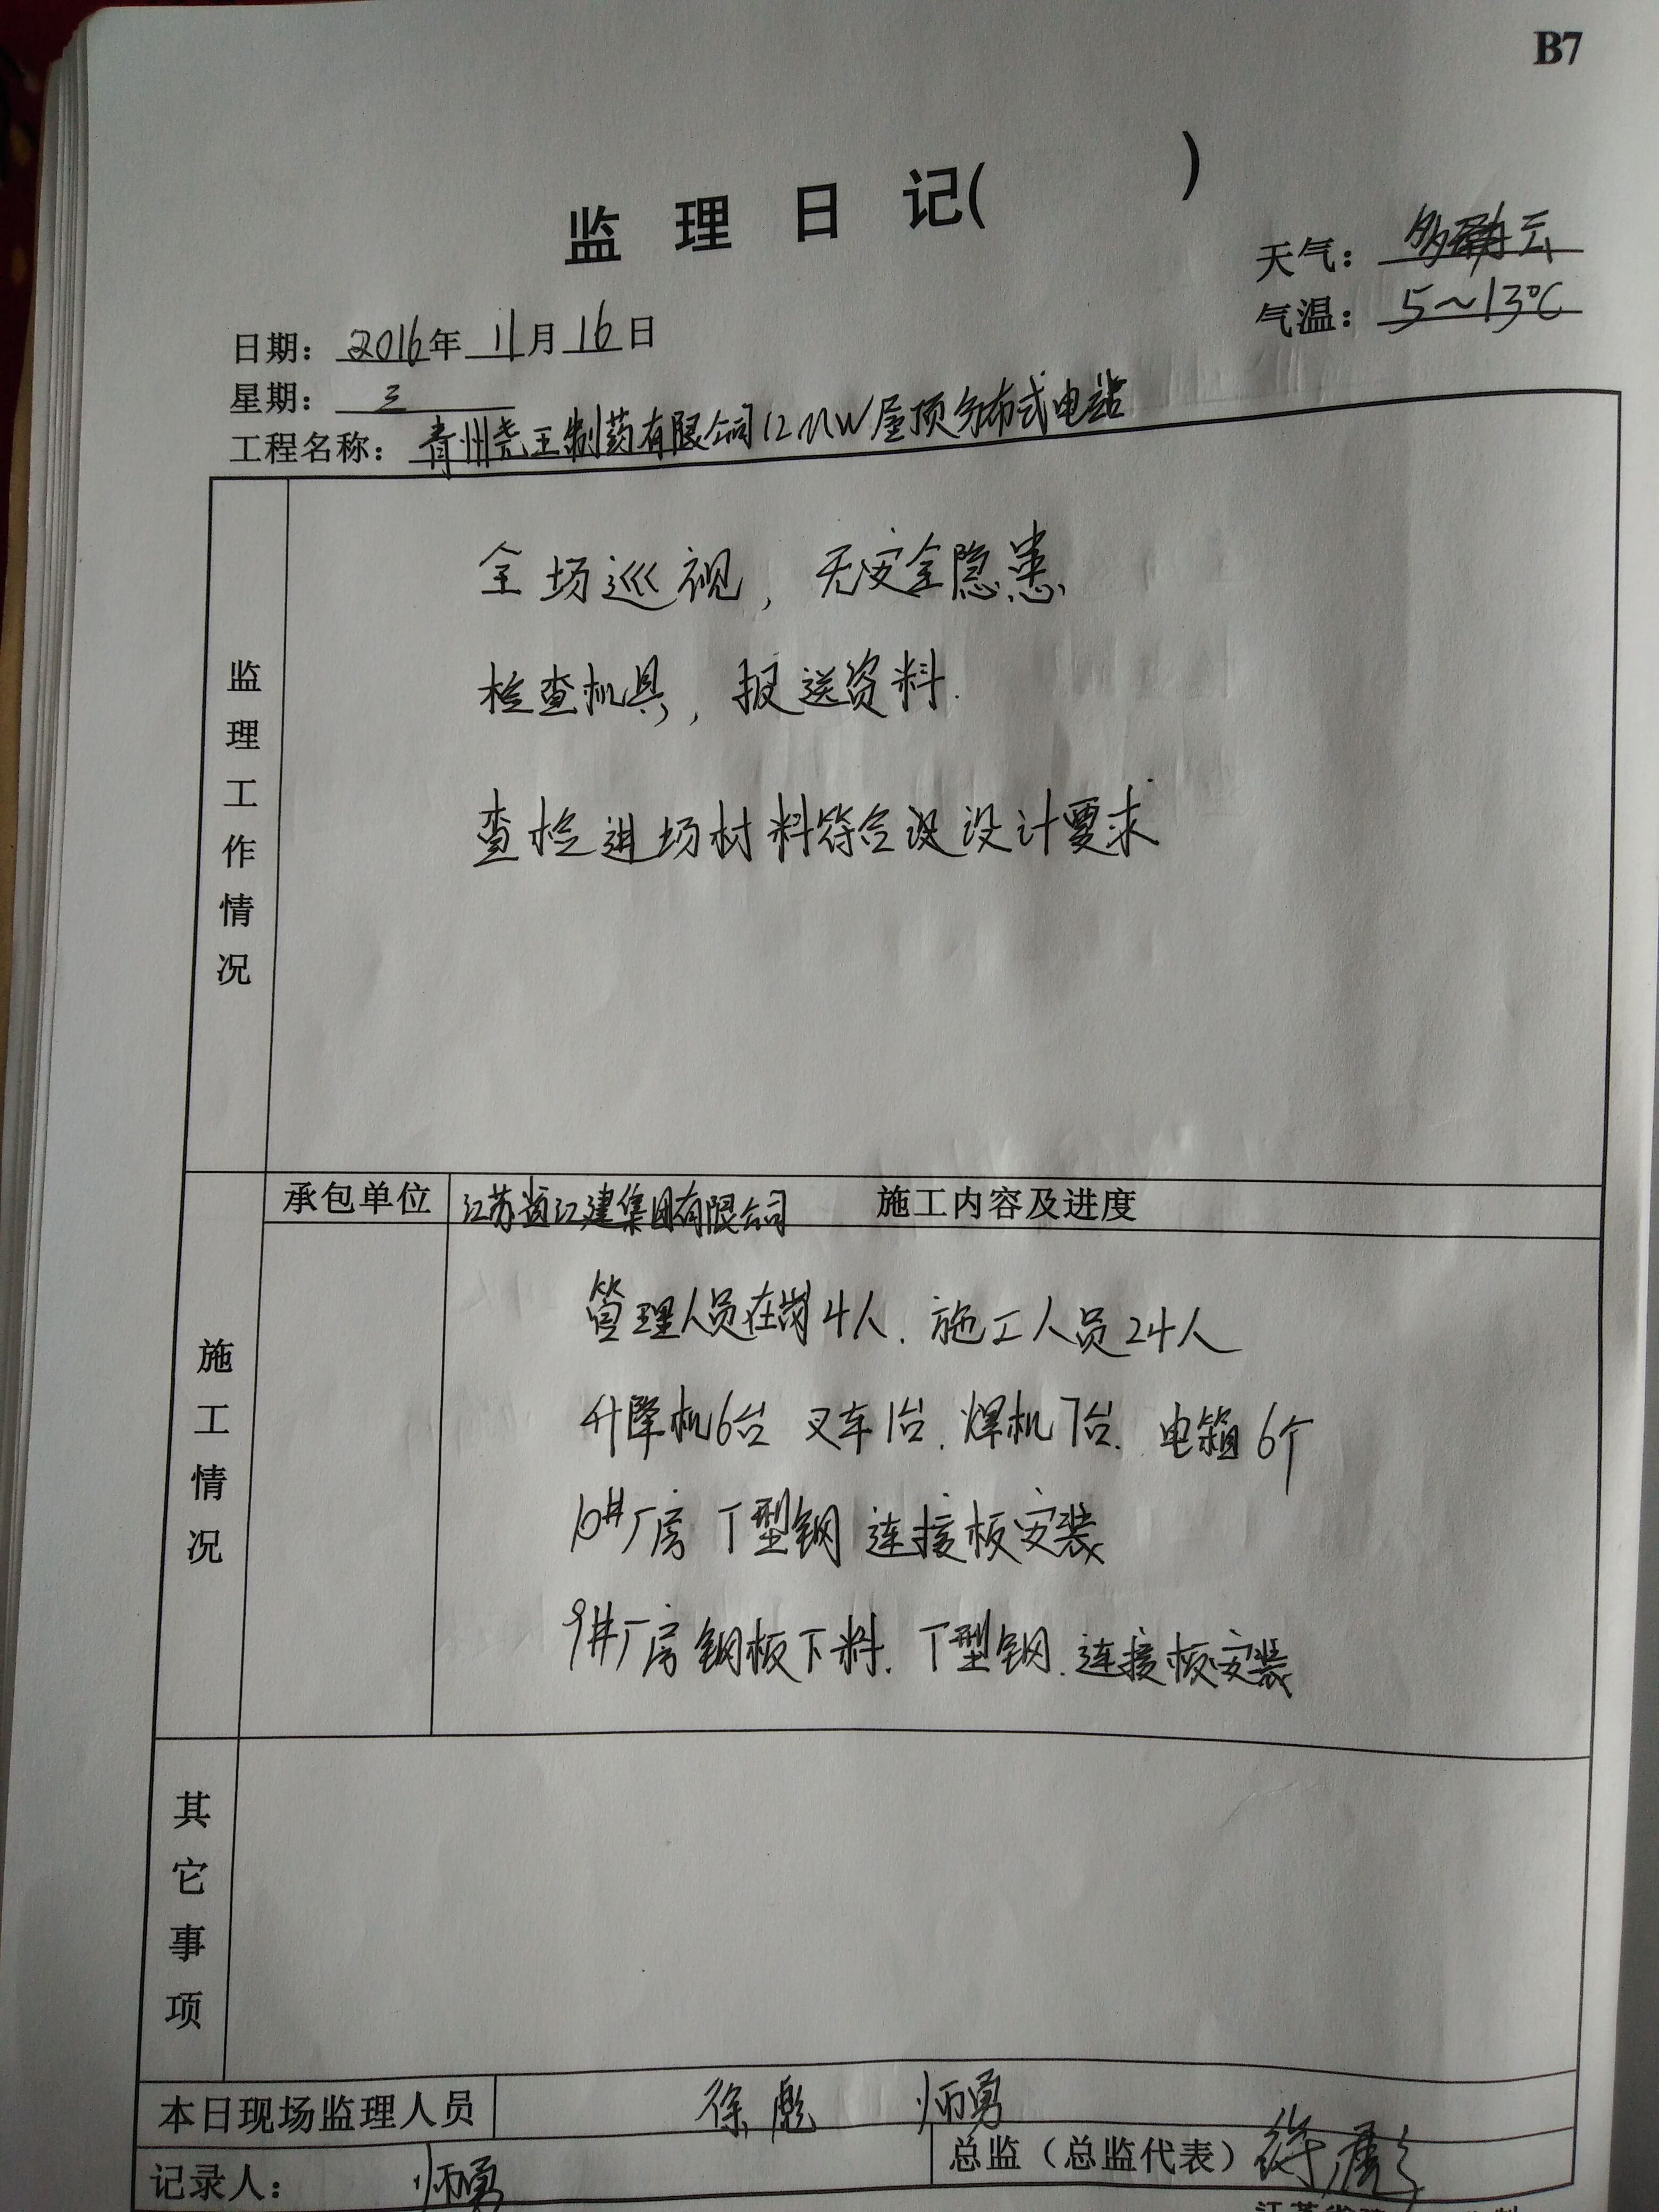 B7
监 理 日 记( )
天气：多云
气温：5～13℃
日期：2016年11月16日
星期：三
工程名称：青州尧王制药有限公司12MW屋顶分布式电站
监理工作情况
全场巡视，无安全隐患
检查机具，报送资料.
查检进场材料符合设设计要求
承包单位 江苏省江建集团有限公司 施工内容及进度
施工情况
管理人员在岗4人. 施工人员24人
升降机6台 叉车1台. 焊机7台. 电箱6个
10#厂房 T型钢 连接板安装
9#厂房 钢板下料. T型钢. 连接板安装
其它事项
本日现场监理人员 徐彪 师勇
记录人：师勇 总监（总监代表）徐彪